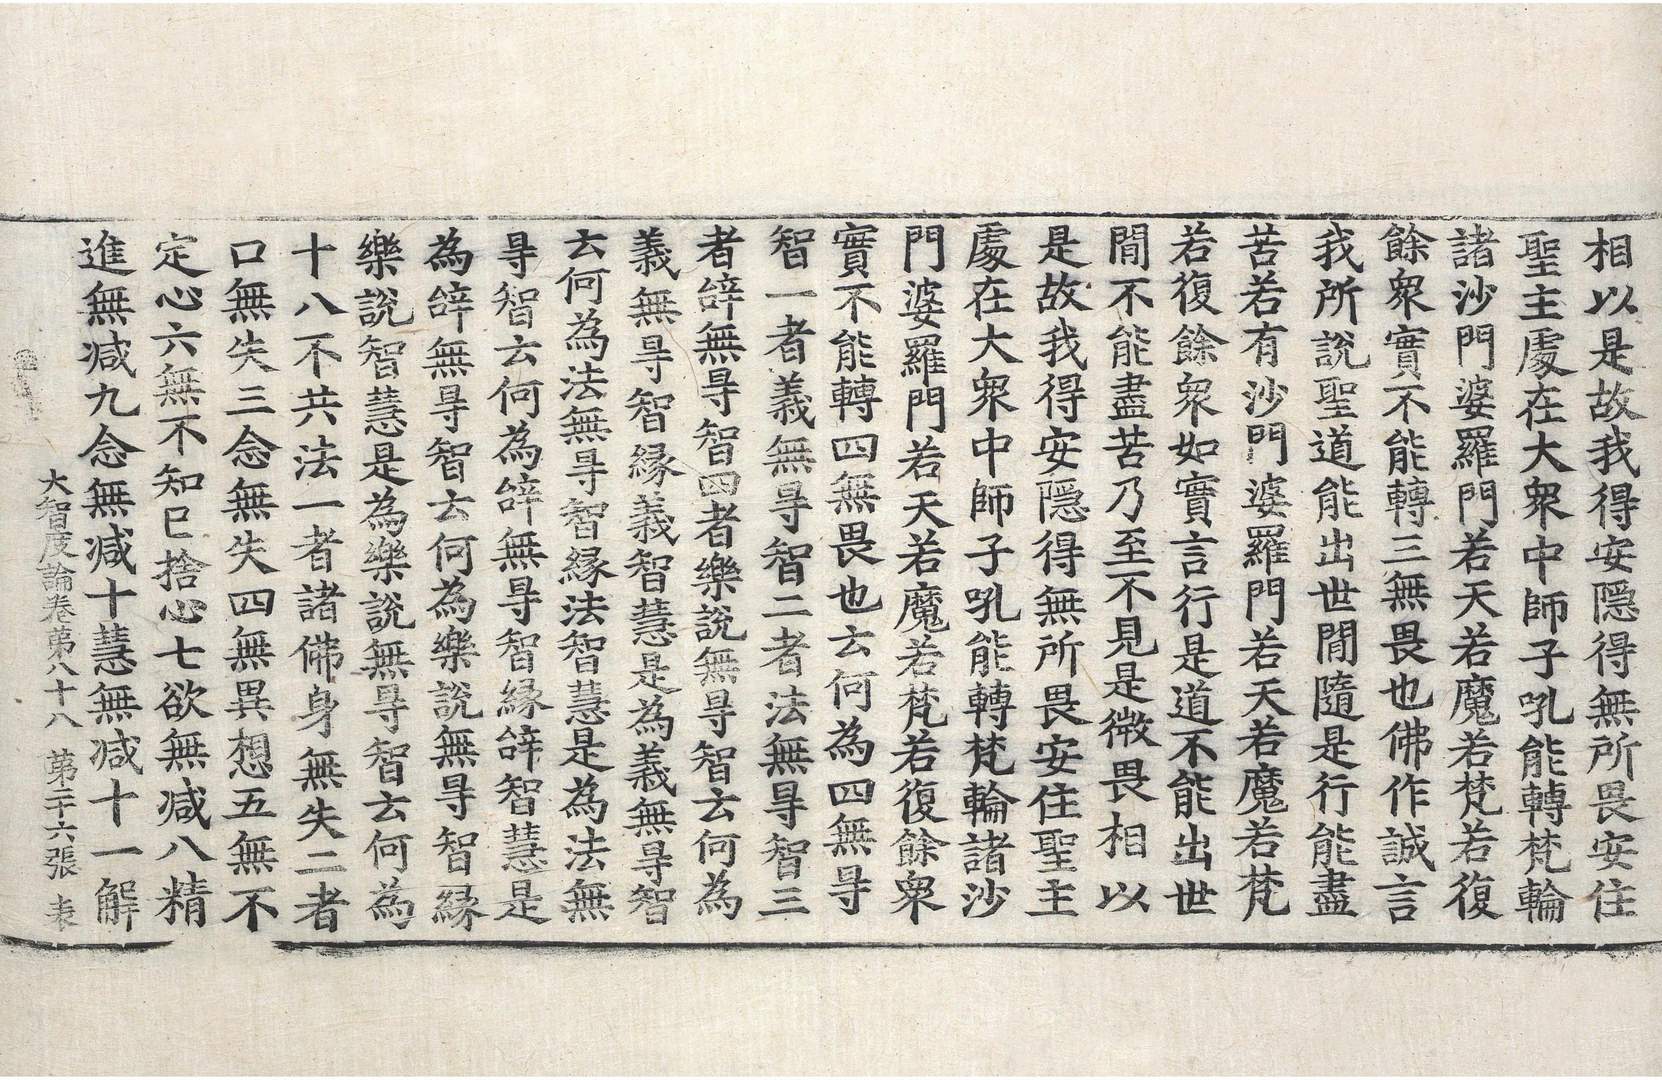 相以是故我得安隱得無所畏安住
聖主處在大衆中師子吼能轉梵輪
諸沙門婆羅門若天若魔若梵若復
餘衆實不能轉三無畏也佛作誠言
我所說聖道能出世閒隨是行能盡
苦若有沙門婆羅門若天若魔若梵
若復餘衆如實言行是道不能出世
閒不能盡苦乃至不見是微畏相以
是故我得安隱得無所畏安住聖主
處在大衆中師子吼能轉梵輪諸沙
門婆羅門若天若魔若梵若復餘衆
實不能轉四無畏也云何為四無㝵
智一者義無㝵智二者法無㝵智三
者辝無㝵智四者樂說無㝵智云何為
義無㝵智緣義智慧是為義無㝵智
云何為法無㝵智緣法智慧是為法無
㝵智云何為辝無㝵智緣辝智慧是
為辝無㝵智云何為樂說無㝵智緣
樂說智慧是為樂說無㝵智云何為
十八不共法一者諸佛身無失二者
口無失三念無失四無異想五無不
定心六無不知已捨心七欲無減八精
進無減九念無減十慧無減十一解
大智度論卷第八十八 第二十六張 表